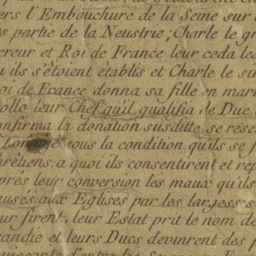 ers l'Embouchure de la Seine sur
partie de la Neustrie, Charle le
ereur et Roi de France leur ceda
ils s'étoient établis et Charle le
oi de France donna sa fille en mar
ollo leur Chef qu'il qualifia de Duc
nfirma la donation susdite, se rese
sous la condition qu'ils se
rétiens, a quoi ils consentirent et rep
prés leur conversion les maux qu'ils
uses aux Eglises par les largesses
ur firent, leur Estat prit le nom de
andie et leurs Ducs devinrent des